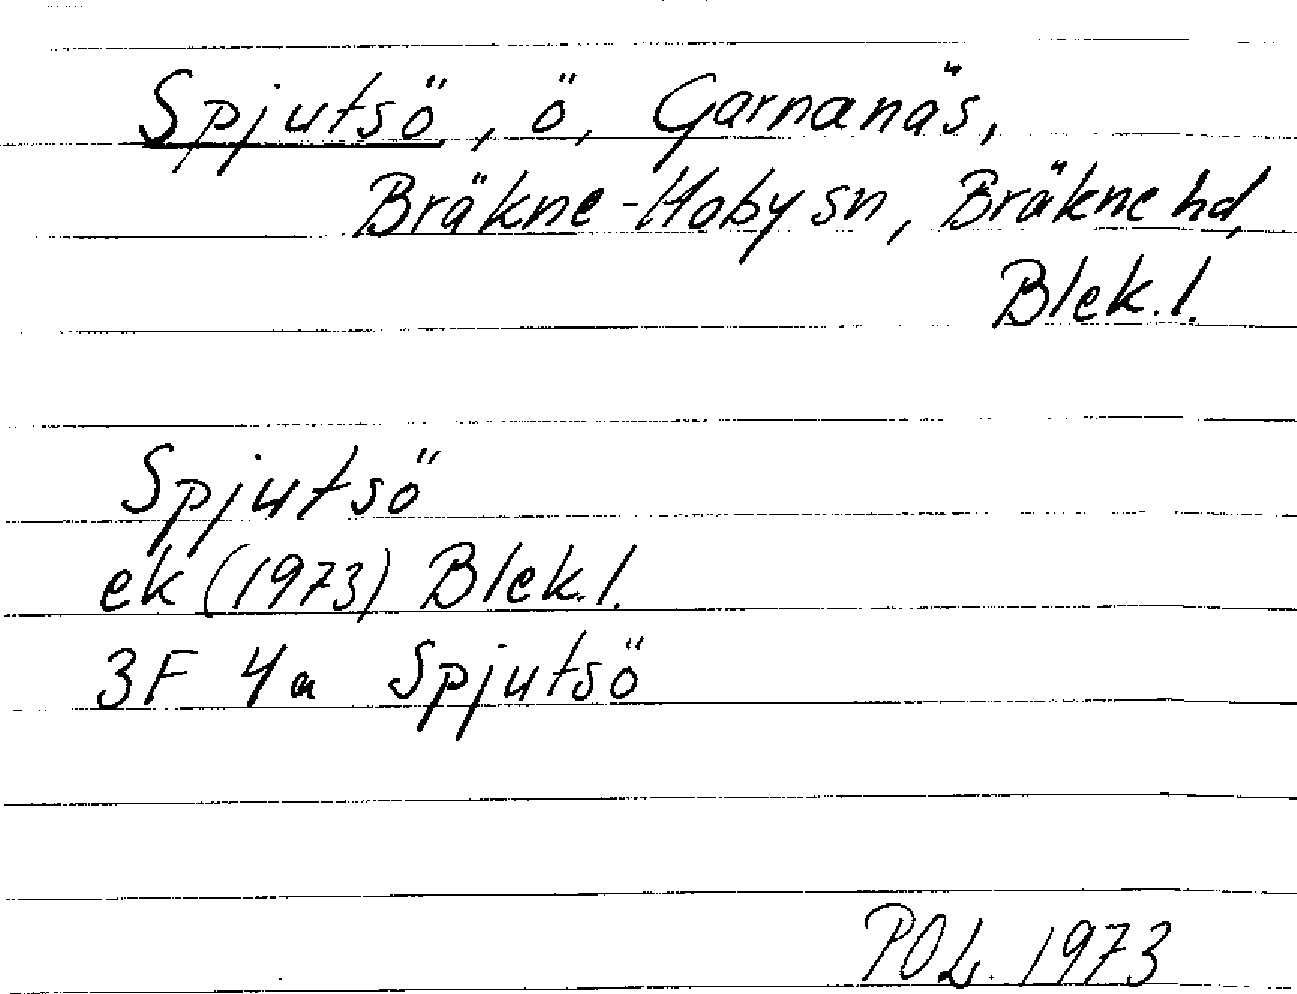 Spjutsö, ö, Garnanäs,
Bräkne-Hoby sn, Bräkne hd,
Blek. l.
Spjutsö
ek (1973) Blek. l.
3F 4a Spjutsö
POL. 1973